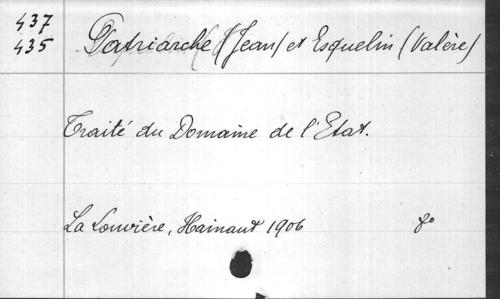 437
435
Patriarche (Jean) et Esquelin (Valère)
Traité du Domaine de l'Etat.
La Louvière, Hainaut 1906 8°